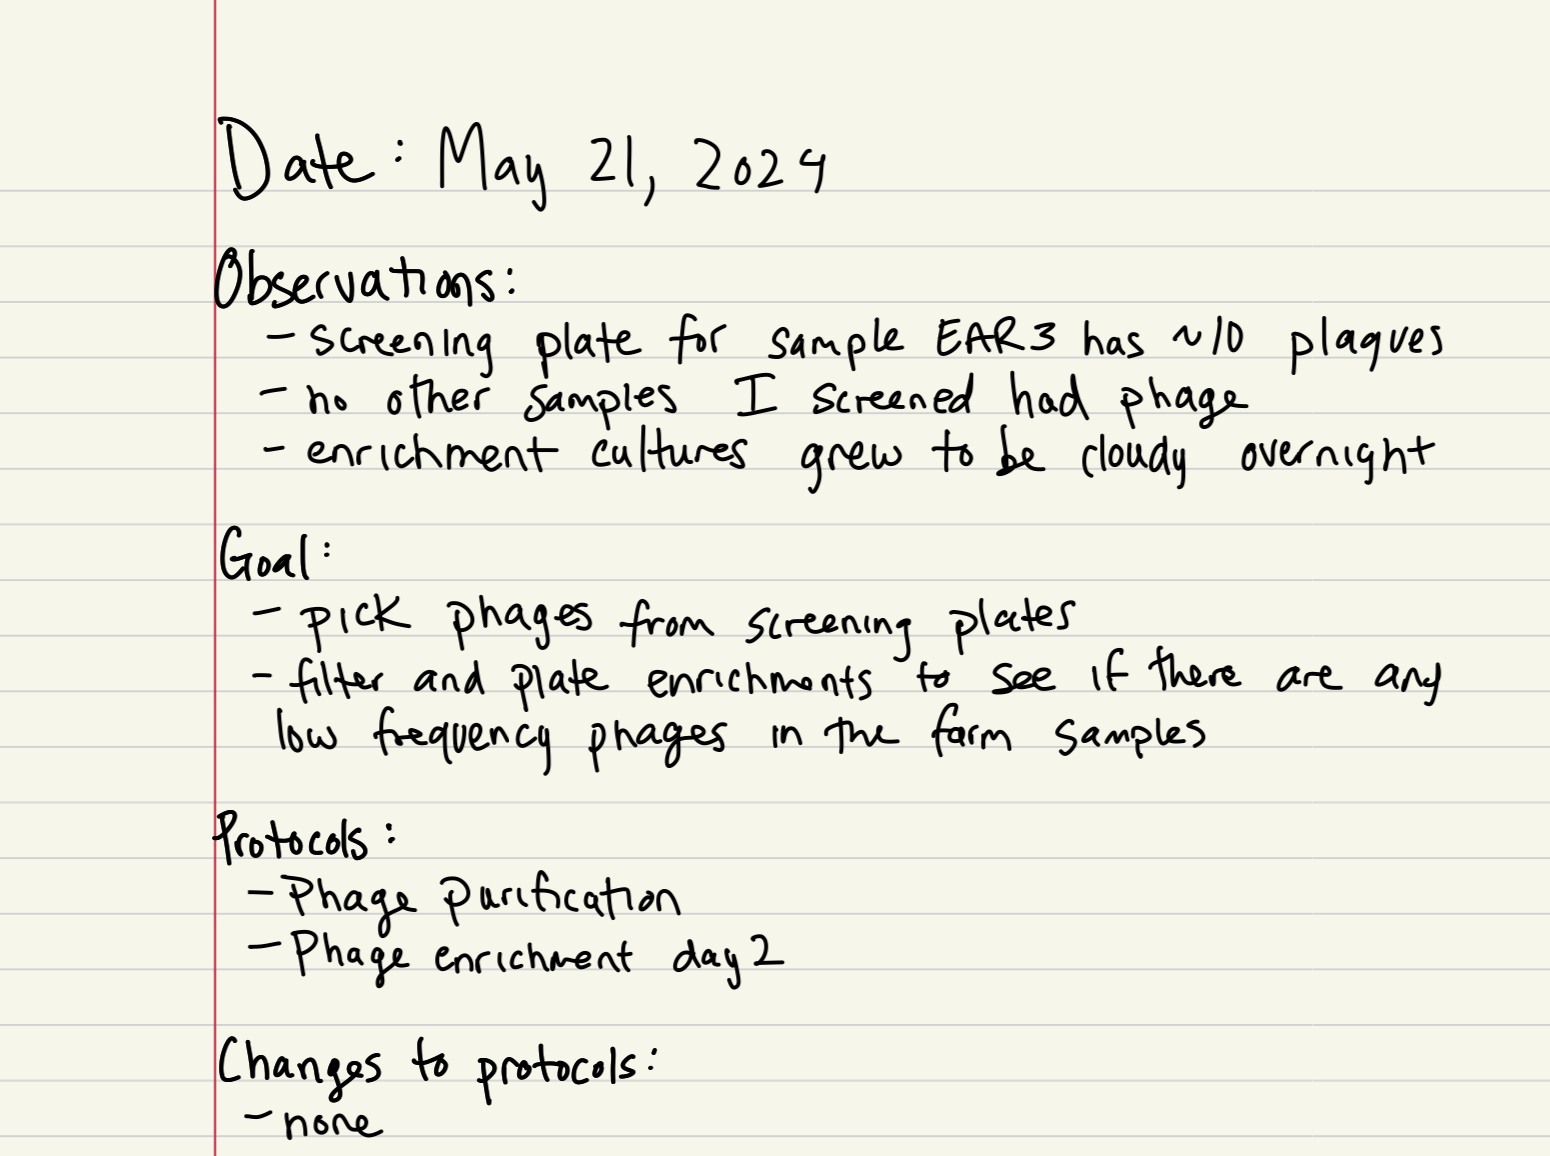 Date: May 21, 2024
Observations:
- screening plate for sample EAR3 has ~10 plaques
- no other samples I screened had phage
- enrichment cultures grew to be cloudy overnight
Goal:
- pick phages from screening plates
- filter and plate enrichments to see if there are any
low frequency phages in the farm samples
Protocols:
- Phage purification
- Phage enrichment day 2
Changes to protocols:
- none